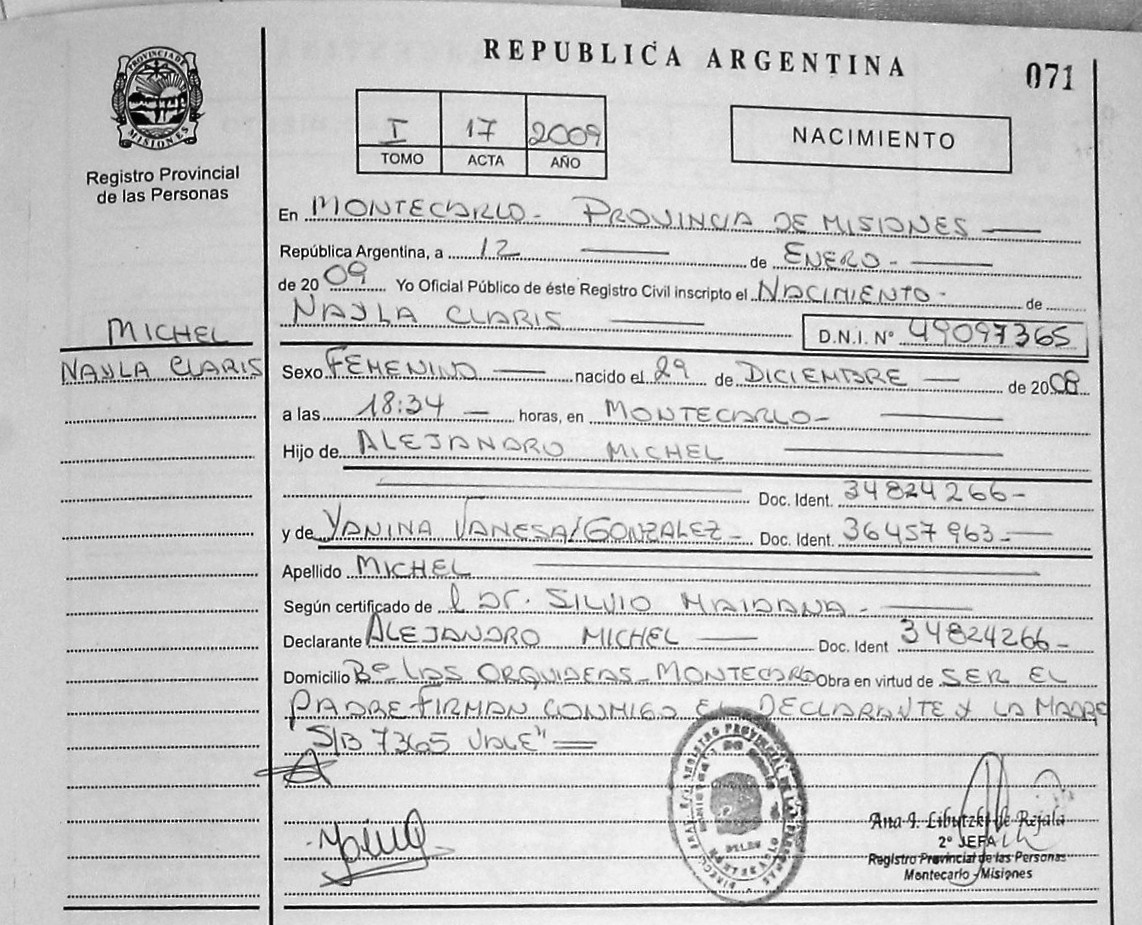 REPUBLICA ARGENTINA
071
PROVINCIA DE MISIONES
Registro Provincial
de las Personas
I 17 2009
TOMO ACTA AÑO
NACIMIENTO
En MONTECARLO- PROVINCIA DE MISIONES
República Argentina, a 12 de ENERO-
de 2009 Yo Oficial Público de éste Registro Civil inscripto el NACIMIENTO- de
NAYLA CLARIS D.N.I. N° 49097365
MICHEL
NAYLA CLARIS
Sexo FEMENINO nacido el 29 de DICIEMBRE de 2008
a las 18:34 horas, en MONTECARLO-
Hijo de ALEJANDRO MICHEL
Doc. Ident. 34824266-
y de YANINA VANESA/GONZALEZ- Doc. Ident. 36457963-
Apellido MICHEL
Según certificado de l DR. SILVIO MAIDANA-
Declarante ALEJANDRO MICHEL Doc. Ident 34824266-
Domicilio Bº LAS ORQUIDEAS- MONTECARLO Obra en virtud de SER EL
PADRE FIRMAN CONMIGO EL DECLARANTE Y LA MADRE
"S/B 7365 VALE"
Ana I. Libutzki de Rejala
2º JEFA
Registro Provincial de las Personas
Montecarlo - Misiones